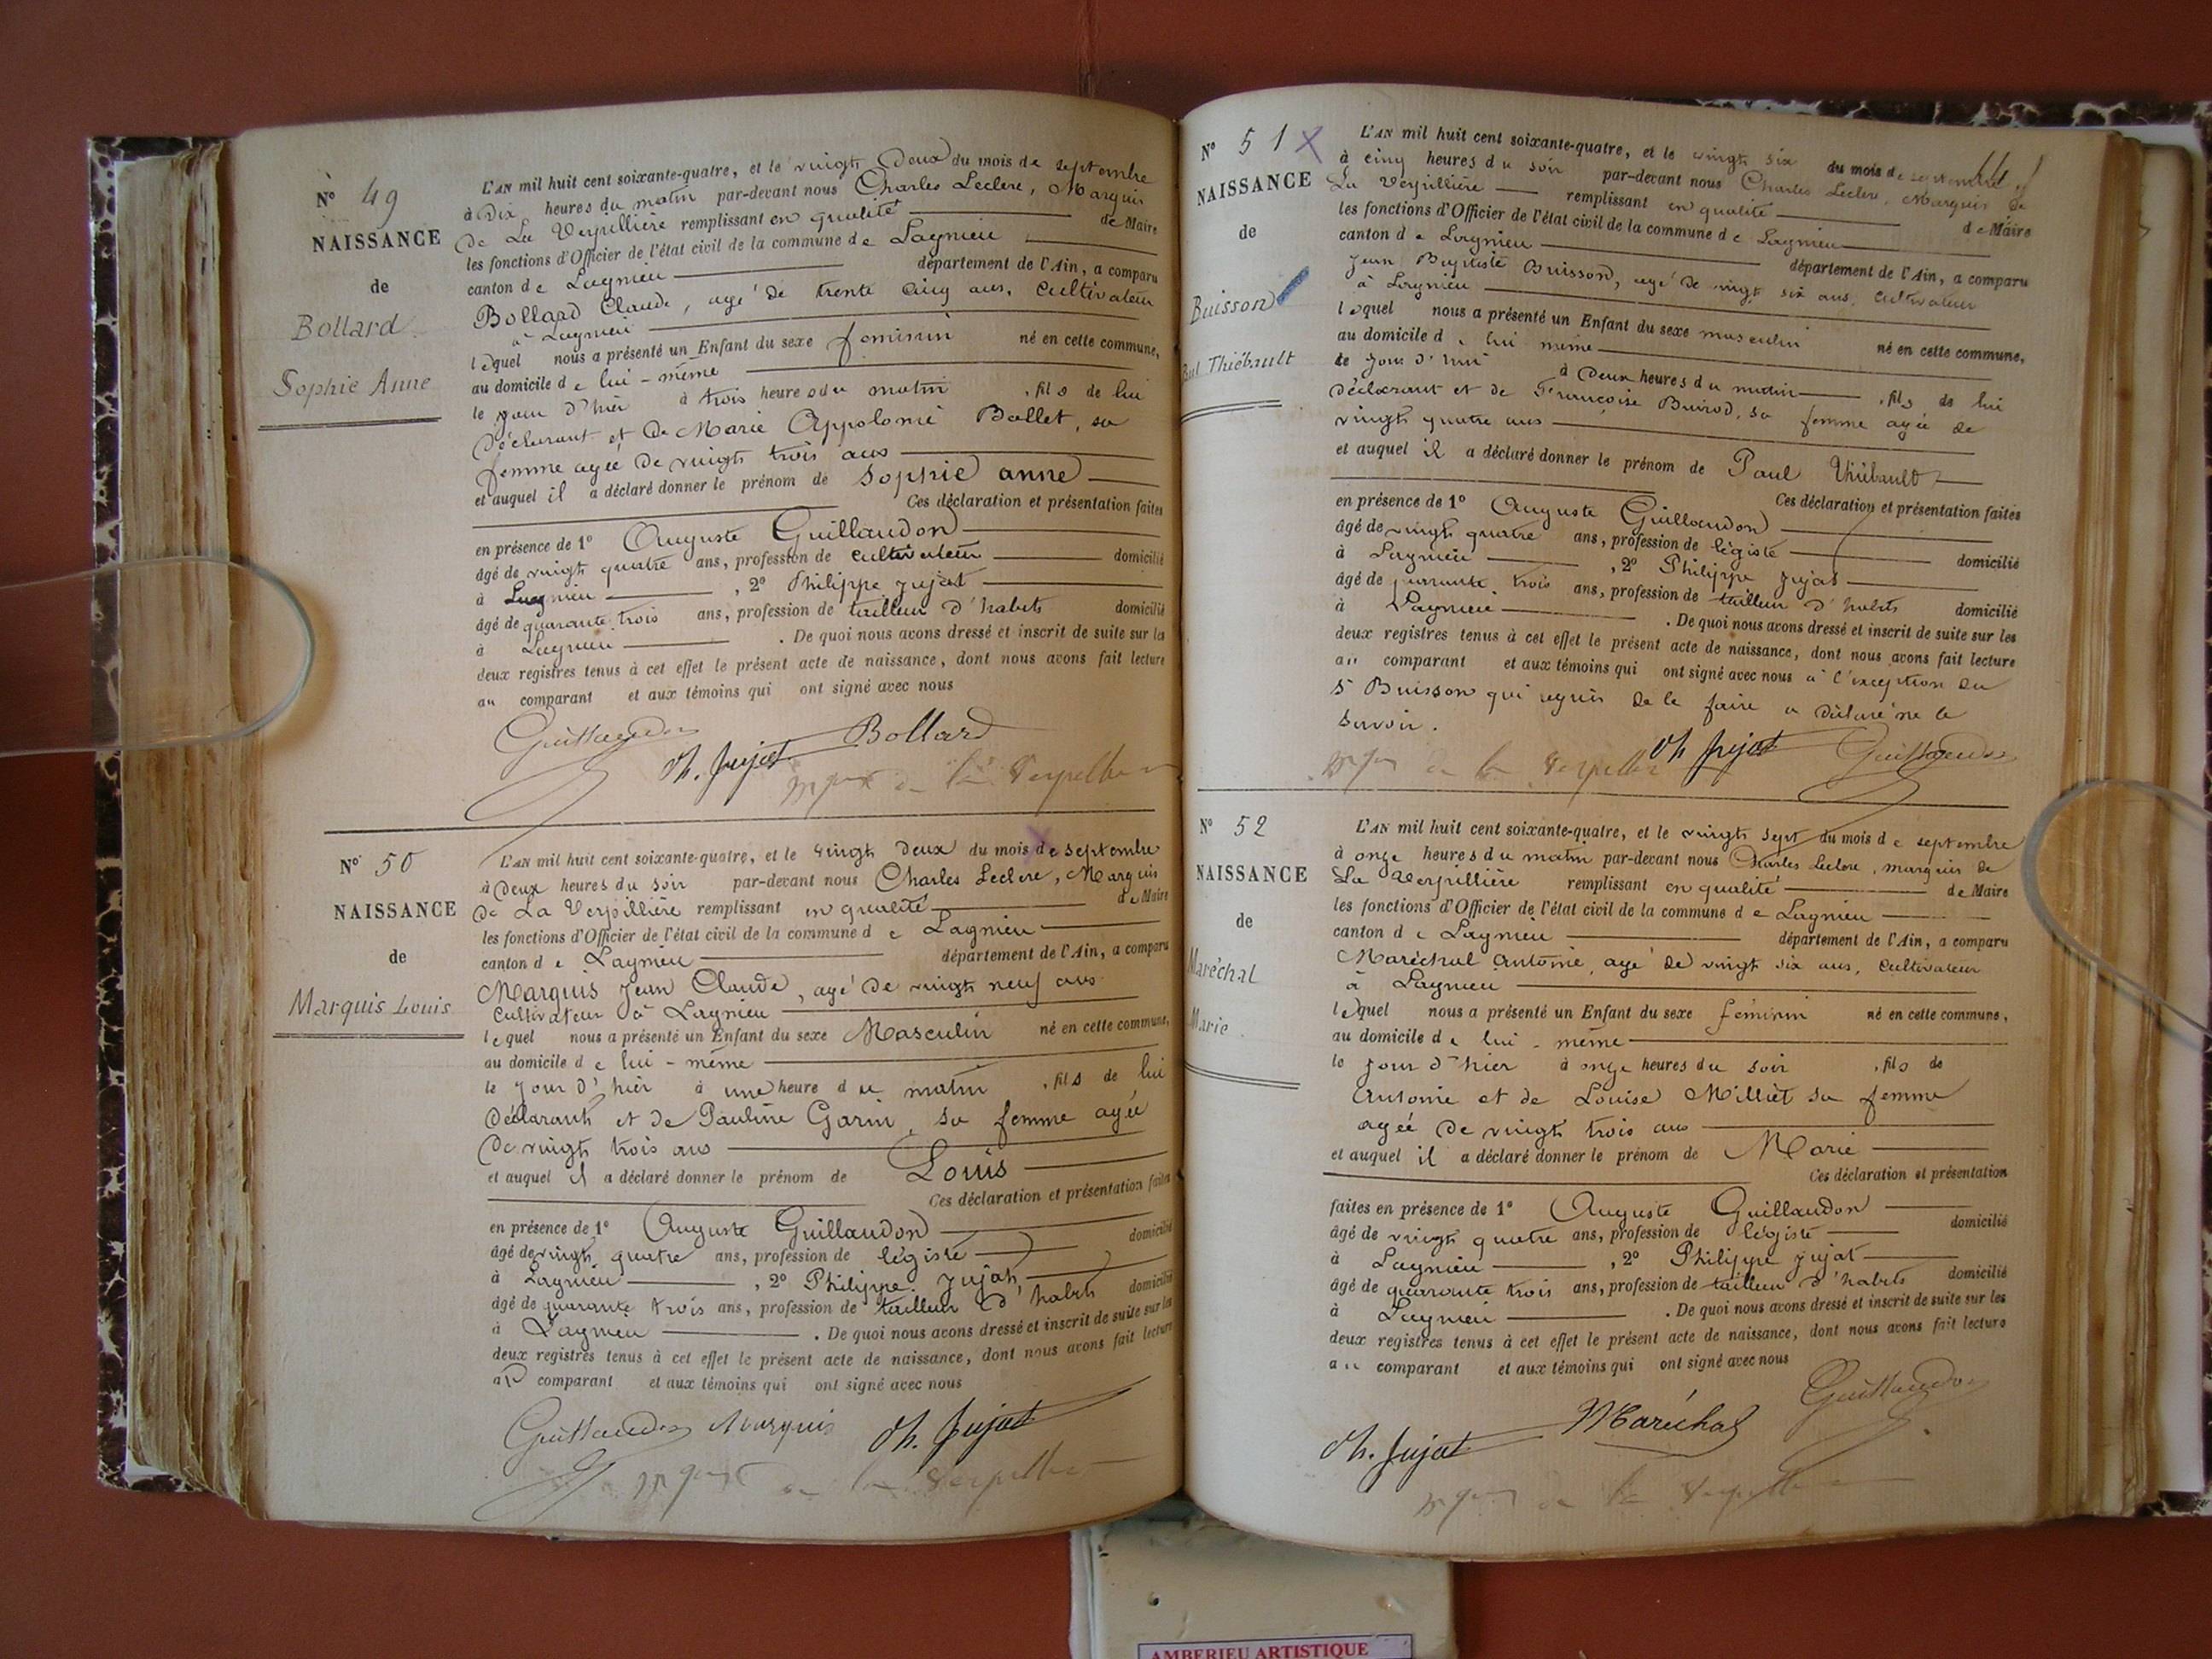 N° 49
NAISSANCE
de
Bollard
Sophie Anne
L'AN mil huit cent soixante-quatre, et le vingt Deux du mois de septembre
à Dix heures du matin par-devant nous Charles Leclerc, Marquis
De La Verpillière remplissant en qualité de Maire
les fonctions d'Officier de l'état civil de la commune de Lagnieu
canton de Lagnieu département de l'Ain, a comparu
Bollard Claude, agé de trente cinq ans, Cultivateur
à Lagnieu
lequel nous a présenté un Enfant du sexe feminin né en cette commune,
au domicile de lui-même
le jour d'hier à trois heures du matin, fils de lui
Déclarant et De Marie Appolonie Ballet, sa
femme agée de vingt trois ans
et auquel il a déclaré donner le prénom de Sophie anne
Ces déclaration et présentation faites
en présence de 1° Auguste Guillaudon
âgé de vingt quatre ans, profession de cultivateur domicilié
à Lagnieu, 2° Philippe Jujat
âgé de quarante trois ans, profession de tailleur d'habits domicilié
à Lagnieu. De quoi nous avons dressé et inscrit de suite sur les
deux registres tenus à cet effet le présent acte de naissance, dont nous avons fait lecture
au comparant et aux témoins qui ont signé avec nous
Guillaudon Bollard
Ph. Jujat
Mquis de la Verpillière
N° 50
NAISSANCE
de
Marquis Louis
L'AN mil huit cent soixante-quatre, et le vingt Deux du mois de septembre
à Deux heures du soir par-devant nous Charles Leclerc, Marquis
De La Verpillière remplissant en qualité de Maire
les fonctions d'Officier de l'état civil de la commune de Lagnieu
canton de Lagnieu département de l'Ain, a comparu
Marquis Jean Claude, agé De vingt neuf ans
Cultivateur à Lagnieu
lequel nous a présenté un Enfant du sexe Masculin né en cette commune,
au domicile de lui-même
le jour d'hier à une heure du matin, fils de lui
Déclarant et de Pauline Garin, sa femme agée
De vingt trois ans
et auquel il a déclaré donner le prénom de Louis
Ces déclaration et présentation faites
en présence de 1° Auguste Guillaudon
âgé de vingt quatre ans, profession de légiste domicilié
à Lagnieu, 2° Philippe Jujat
âgé de quarante trois ans, profession de tailleur d'habits domicilié
à Lagnieu. De quoi nous avons dressé et inscrit de suite sur les
deux registres tenus à cet effet le présent acte de naissance, dont nous avons fait lecture
au comparant et aux témoins qui ont signé avec nous
Guillaudon Marquis Ph. Jujat
Mquis de la Verpillière
N° 51 X
NAISSANCE
de
Buisson
Paul Thiébault
L'AN mil huit cent soixante-quatre, et le vingt six du mois de septembre
à cinq heures du soir par-devant nous Charles Leclerc, Marquis De
La Verpillière remplissant en qualité de Maire
les fonctions d'Officier de l'état civil de la commune de Lagnieu
canton de Lagnieu département de l'Ain, a comparu
Jean Baptiste Buisson, agé de vingt six ans, Cultivateur
à Lagnieu
lequel nous a présenté un Enfant du sexe masculin né en cette commune,
au domicile de lui même
le jour d'hui à Deux heures du matin, fils de lui
Déclarant et de Françoise Buirod, sa femme agée de
vingt quatre ans
et auquel il a déclaré donner le prénom de Paul Thiébault
Ces déclaration et présentation faites
en présence de 1° Auguste Guillaudon
âgé de vingt quatre ans, profession de légiste domicilié
à Lagnieu, 2° Philippe Jujat
âgé de quarante trois ans, profession de tailleur d'habits domicilié
à Lagnieu. De quoi nous avons dressé et inscrit de suite sur les
deux registres tenus à cet effet le présent acte de naissance, dont nous avons fait lecture
au comparant et aux témoins qui ont signé avec nous à l'exception du
Sr Buisson qui requis de le faire a déclaré ne le
savoir.
Mquis de la Verpillière Ph Jujat Guillaudon
N° 52
NAISSANCE
de
Maréchal
Marie
L'AN mil huit cent soixante-quatre, et le vingt sept du mois de septembre
à onze heures du matin par-devant nous Charles Leclerc, marquis de
La Verpillière remplissant en qualité de Maire
les fonctions d'Officier de l'état civil de la commune de Lagnieu
canton de Lagnieu département de l'Ain, a comparu
Maréchal Antoine, agé de vingt six ans, Cultivateur
à Lagnieu
lequel nous a présenté un Enfant du sexe féminin né en cette commune,
au domicile de lui-même
le jour d'hier à onze heures du soir, fils de
Antoine et de Louise Milliet sa femme
agée de vingt trois ans
et auquel il a déclaré donner le prénom de Marie
Ces déclaration et présentation
faites en présence de 1° Auguste Guillaudon
âgé de vingt quatre ans, profession de légiste domicilié
à Lagnieu, 2° Philippe Jujat
âgé de quarante trois ans, profession de tailleur d'habits domicilié
à Lagnieu. De quoi nous avons dressé et inscrit de suite sur les
deux registres tenus à cet effet le présent acte de naissance, dont nous avons fait lecture
au comparant et aux témoins qui ont signé avec nous
Guillaudon
Ph. Jujat Maréchal
Mquis de la Verpillière
AMBERIEU ARTISTIQUE